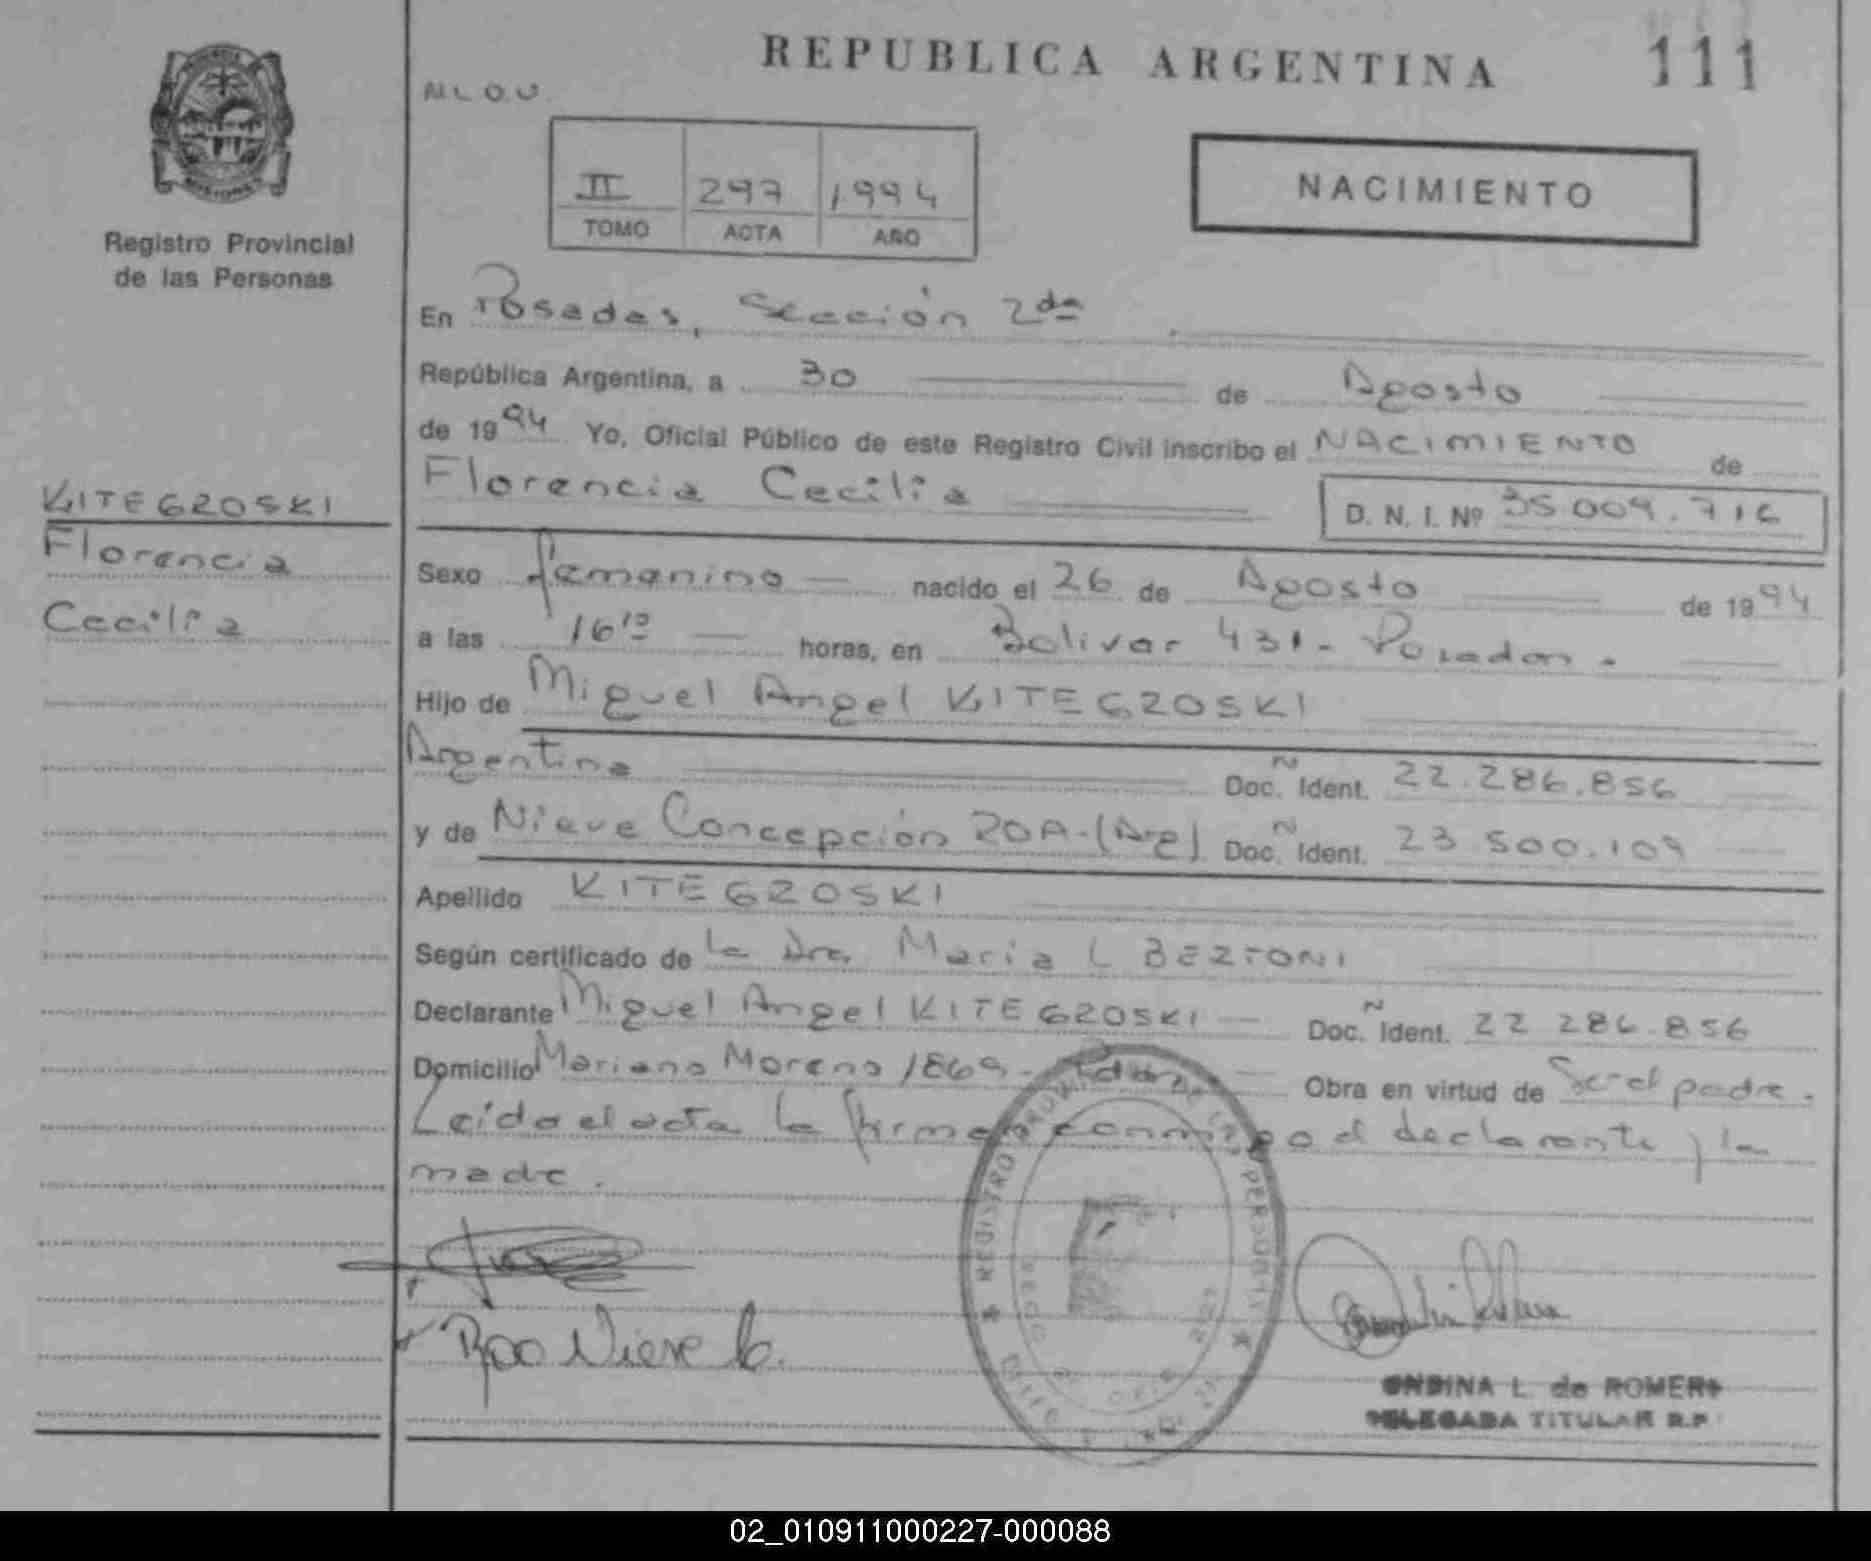 REPUBLICA ARGENTINA 111
M.L.O.U.
II 297 1.994
TOMO ACTA AÑO
NACIMIENTO
PROVINCIA MISIONES
Registro Provincial
de las Personas
En Posadas, Sección 2da
República Argentina, a 30 de Agosto
de 1994 Yo, Oficial Público de este Registro Civil inscribo el NACIMIENTO de
Florencia Cecilia D. N. I. Nº 35.009.716
KITEGROSKI
Florencia
Cecilia
Sexo femenino nacido el 26 de Agosto de 1994
a las 16 10 horas, en Bolivar 431 - Posadas.
Hijo de Miguel Angel KITEGROSKI
Argentina Doc. Ident. 22.286.856
y de Nieve Concepción ROA - (Arg) Doc. Ident. 23.500.109
Apellido KITEGROSKI
Según certificado de la Dra. Maria L BEZTONI
Declarante Miguel Angel KITEGROSKI Doc. Ident. 22 286.856
Domicilio Mariano Moreno 1869 - Pdas. Obra en virtud de Ser el padre.
Leída el acta la firman conmigo el declarante y la
madre.
Roa Nieve C.
REGISTRO PROVINCIAL DE LAS PERSONAS
ONDINA L. de ROMERO
DELEGADA TITULAR R.P.
02_010911000227-000088